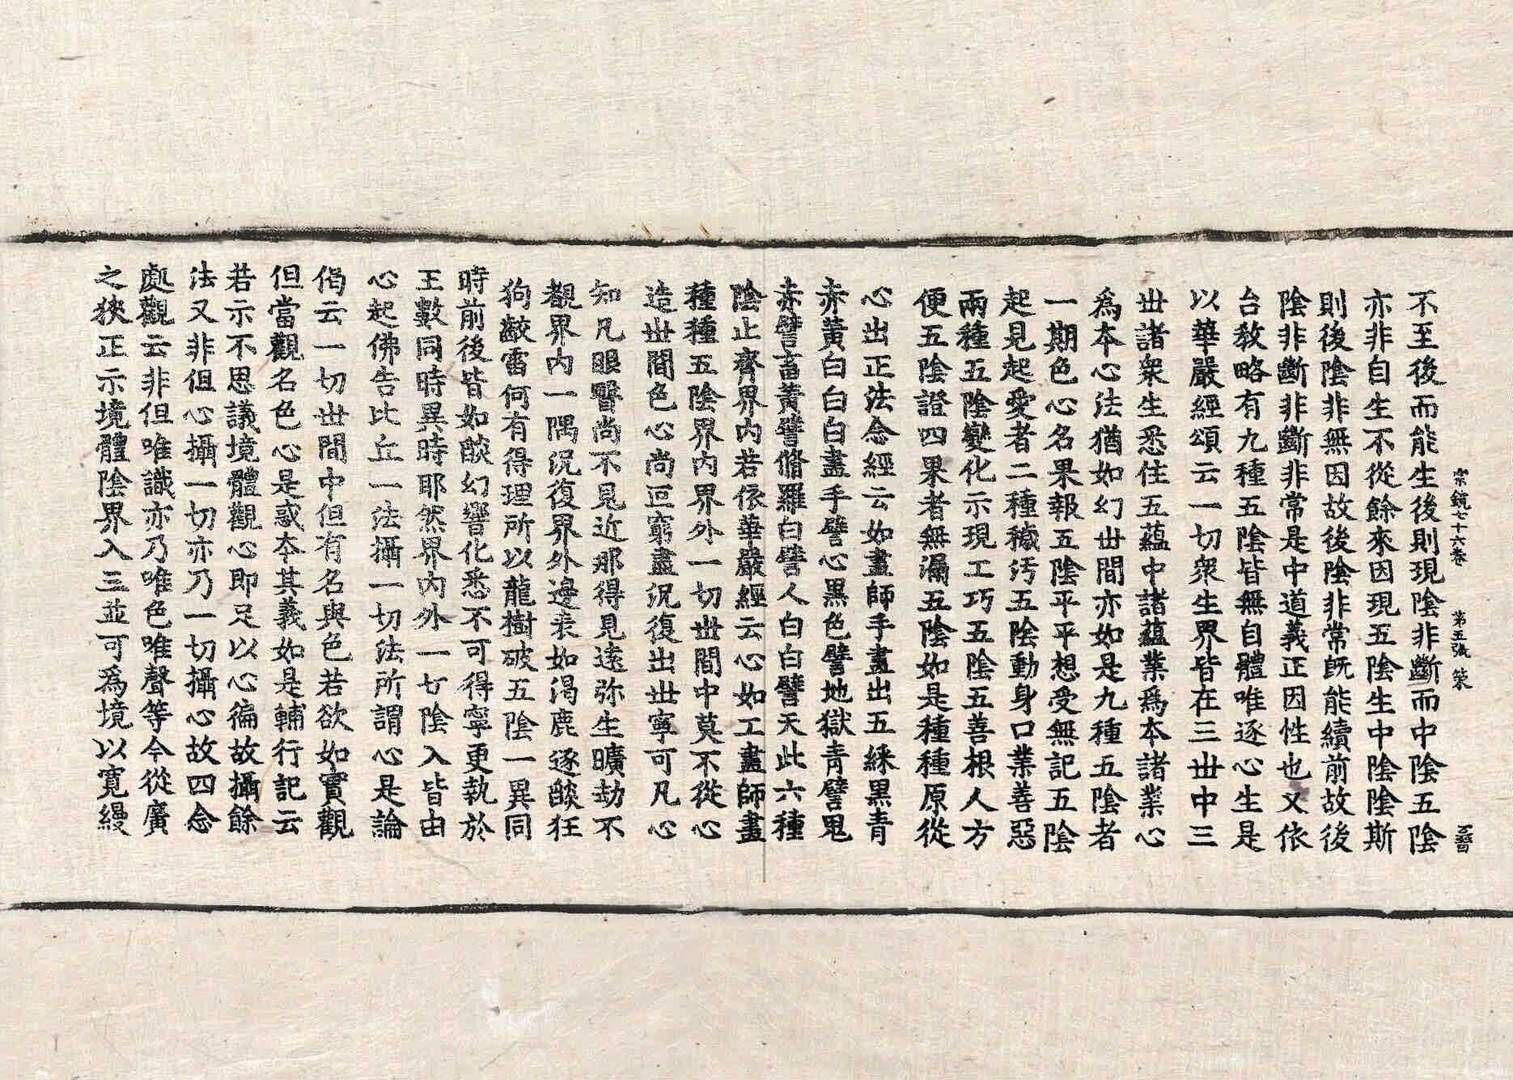 宗鏡七十六卷　第五張　策
不至後而能生後則現陰非斷而中陰五陰
亦非自生不從餘來因現五陰生中陰陰斯
則後陰非無因故後陰非常旣能續前故後
陰非斷非斷非常是中道義正因性也又依
台敎略有九種五陰皆無自體唯逐心生是
以華嚴經頌云一切衆生界皆在三世中三
世諸衆生悉住五蘊中諸蘊業爲本諸業心
爲本心法猶如幻世間亦如是九種五陰者
一期色心名果報五陰平平想受無記五陰
起見起愛者二種穢汚五陰動身口業善惡
兩種五陰變化示現工巧五陰五善根人方
便五陰證四果者無漏五陰如是種種原從
心出正法念經云如畫師手畫出五綵黑青
赤黃白白白畫手譬心黑色譬地獄青譬鬼
赤譬畜黃譬脩羅白譬人白白譬天此六種
陰止齊界內若依華嚴經云心如工畫師畫
種種五陰界內界外一切世間中莫不從心
造世間色心尚叵窮盡況復出世寧可凡心
知凡眼瞖尚不見近那得見遠弥生曠劫不
覩界內一隅況復界外邊表如渴鹿逐燄狂
狗齩雷何有得理所以龍樹破五陰一異同
時前後皆如燄幻響化悉不可得寧更執於
王數同時異時耶然界內外一切陰入皆由
心起佛告比丘一法攝一切法所謂心是論
偈云一切世間中但有名與色若欲如實觀
但當觀名色心是惑本其義如是輔行記云
若示不思議境體觀心即足以心徧故攝餘
法又非但心攝一切亦乃一切攝心故四念
處觀云非但唯識亦乃唯色唯聲等今從廣
之狹正示境體陰界入三並可爲境以寬縵